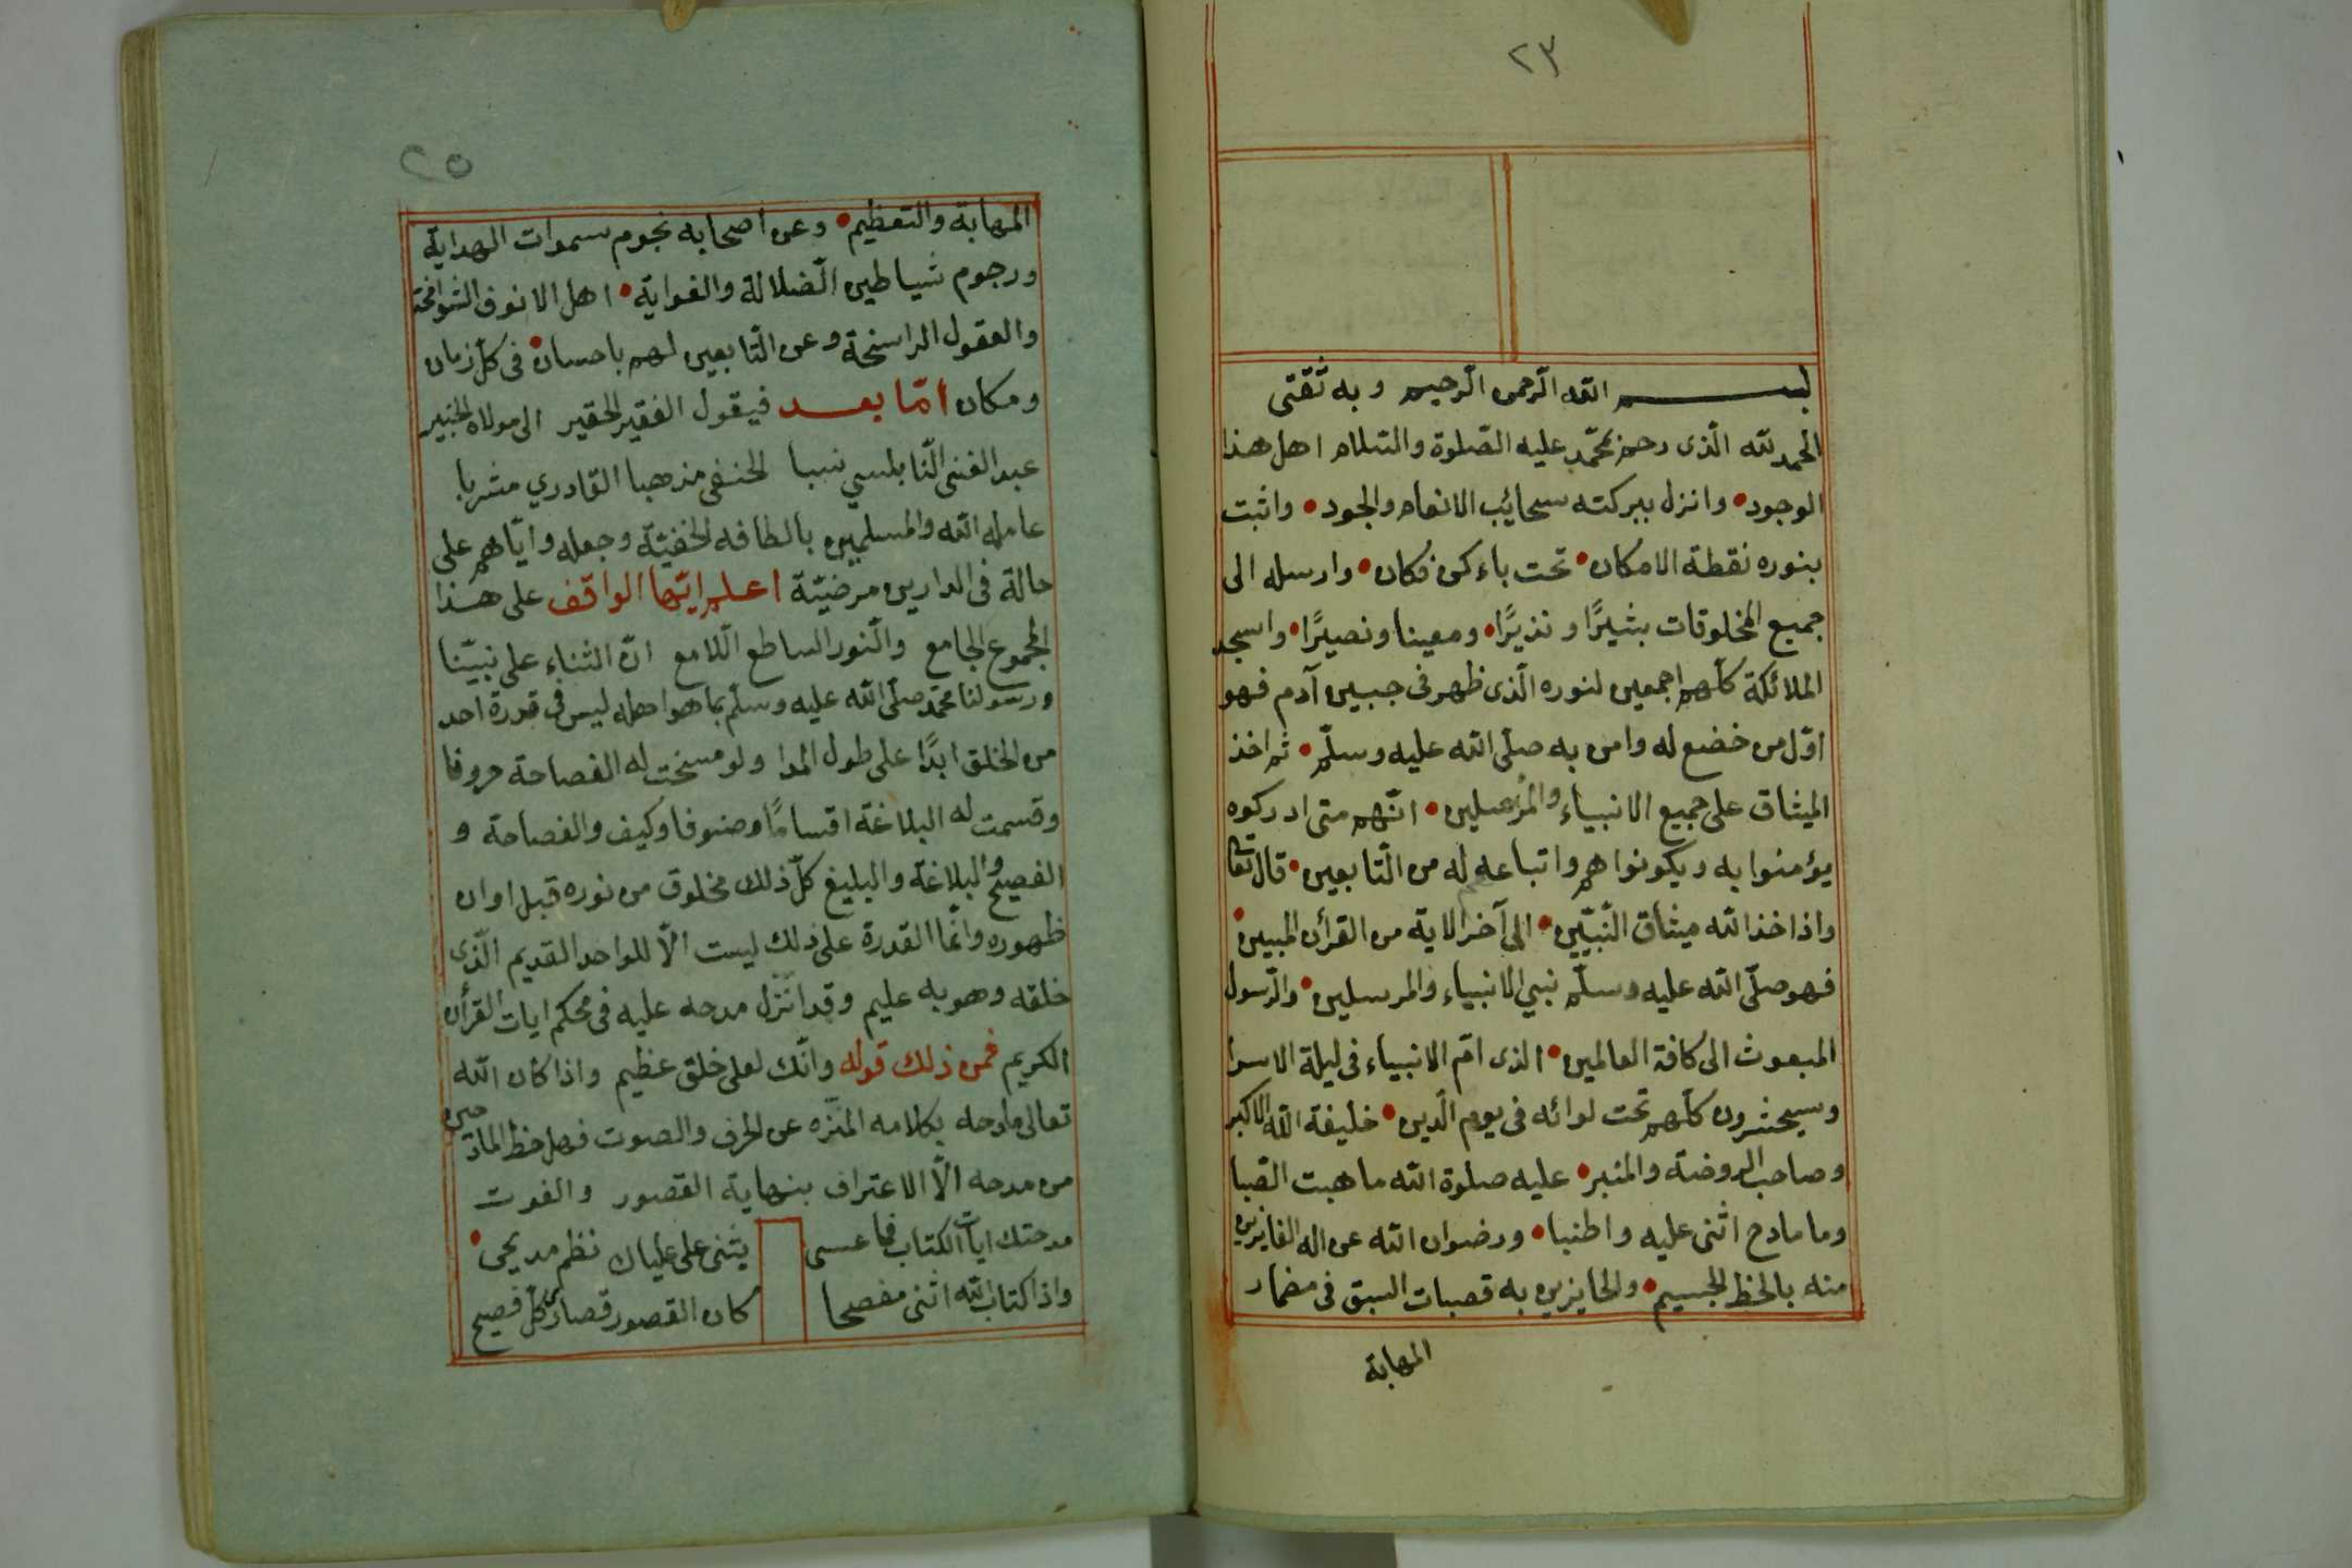 ٢٣
بسم الله الرحمن الرحيم وبه ثقتى
الحمد لله الّذى رحم بمحمّد عليه الصّلوة والسّلام اهل هذا
الوجود • وانزل ببركته سحائب الانعام والجود • واثبت
بنوره نقطة الامكان • تحت باء كن فكان • وارسله الى
جميع المخلوقات بشيرًا ونذيرًا • ومعينا ونصيرًا • واسجد
الملائكة كلّهم اجمعين لنوره الّذى ظهر فى جبين آدم فهو
اوّل من خضع له وامن به صلّى الله عليه وسلّم • ثم اخذ
الميثاق على جميع الانبياء والمرسلين • انّهم متى ادركوه
يؤمنوا به ويكونوا هم واتباعهم له من التّابعين • قال تعالى
واذ اخذ الله ميثاق النّبيّين • الى آخر الاية من القرأن المبين •
فهو صلّى الله عليه وسلّم نبي الانبياء والمرسلين • والرّسول
المبعوث الى كافة العالمين • الذى امّ الانبياء فى ليلة الاسرا
وسيحشرون كلّهم تحت لوائه فى يوم الّدين • خليفة الله الاكبر
وصاحب الروضة والمنبر • عليه صلوة الله ما هبت الصّبا
وما مادح اثنى عليه واطنبا • ورضوان الله عن اله الفايزين
منه بالحظ الجسيم • والحايزين به قصبات السبق فى مضمار
المهابة
٢٥
المهابة والتعظيم • وعن اصحابه نجوم سموات الهداية
ورجوم شياطين الضّلالة والغواية • اهل الانوف الشوامخة
والعقول الراسخة وعن التّابعين لهم باحسان • فى كلّ زمان
ومكان امّا بعد فيقول الفقير الحقير الى مولاه الخبير
عبد الغنى النّابلسي نسبا الحنفى مذهبا القادري مشربا
عامله الله والمسلمين بالطافه الخفيّة وجعله وايّاهم على
حالة فى الدارين مرضيّة اعلم ايّها الواقف على هذا
المجموع الجامع والنّور الساطع اللّامع انّ الثناء على نبيّنا
ورسولنا محمّد صلّى الله عليه وسلّم بما هو اهله ليس فى قدرة احد
من الخلق ابدًا على طول المدا ولو مسخت له الفصاحة حروفا
وقسمت له البلاغة اقسامًا وصنوفا وكيف والفصاحة و
الفصيح والبلاغة والبليغ كلّ ذلك مخلوق من نوره قبل اوان
ظهوره وانّما القدرة على ذلك ليست الّا للواحد القديم الّذى
خلقه وهو به عليم وقد انزل مدحه عليه فى محكم ايات القرأن
الكريم فمن ذلك قوله وانّك لعلى خلق عظيم واذا كان الله
تعالى مادحه بكلامه المنّزه عن الحرف والصوت فهل حظ المادحين
من مدحه الّا الاعتراف بنهاية القصور والفوت
مدحتك ايات الكتاب فما عسى يثنى على علياك نظم مديحى •
واذا كتاب الله اثنى مفصحا كان القصور قصارى كلّ فصيح